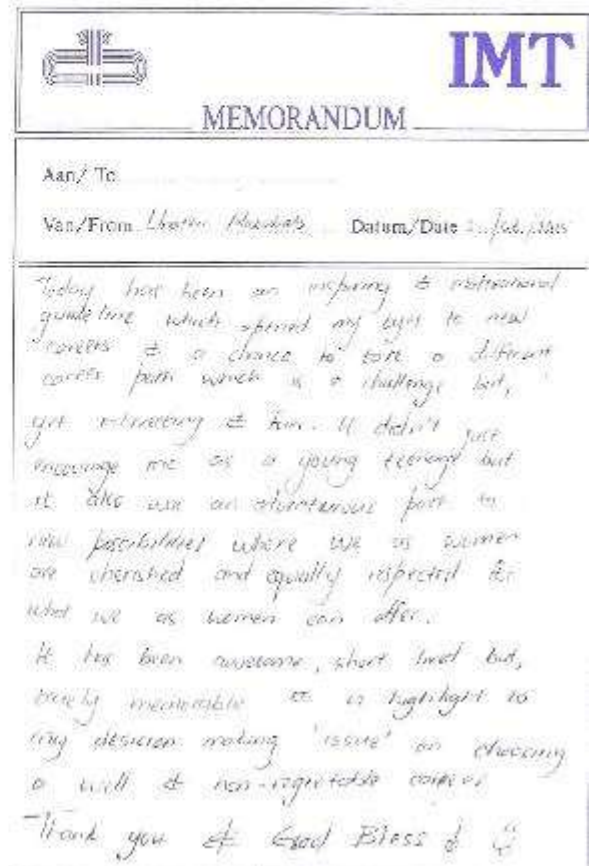 IMT
MEMORANDUM
Aan/ To
Van/From Datum/Date
Today has been an inspiring & motivational
guide line which opened my eyes to new
careers & a chance to take a different
career path which is a challenge but,
yet interesting & fun. It didn't just
encourage me as a young teenage but
it also was an adventurous path to
new possibilities where we as women
are cherished and equally respected for
what we as women can offer.
It has been awesome, short lived but,
truely memorable & a highlight to
my desicion making 'issue' on choosing
a well & non-regretable career.
Thank you & God Bless